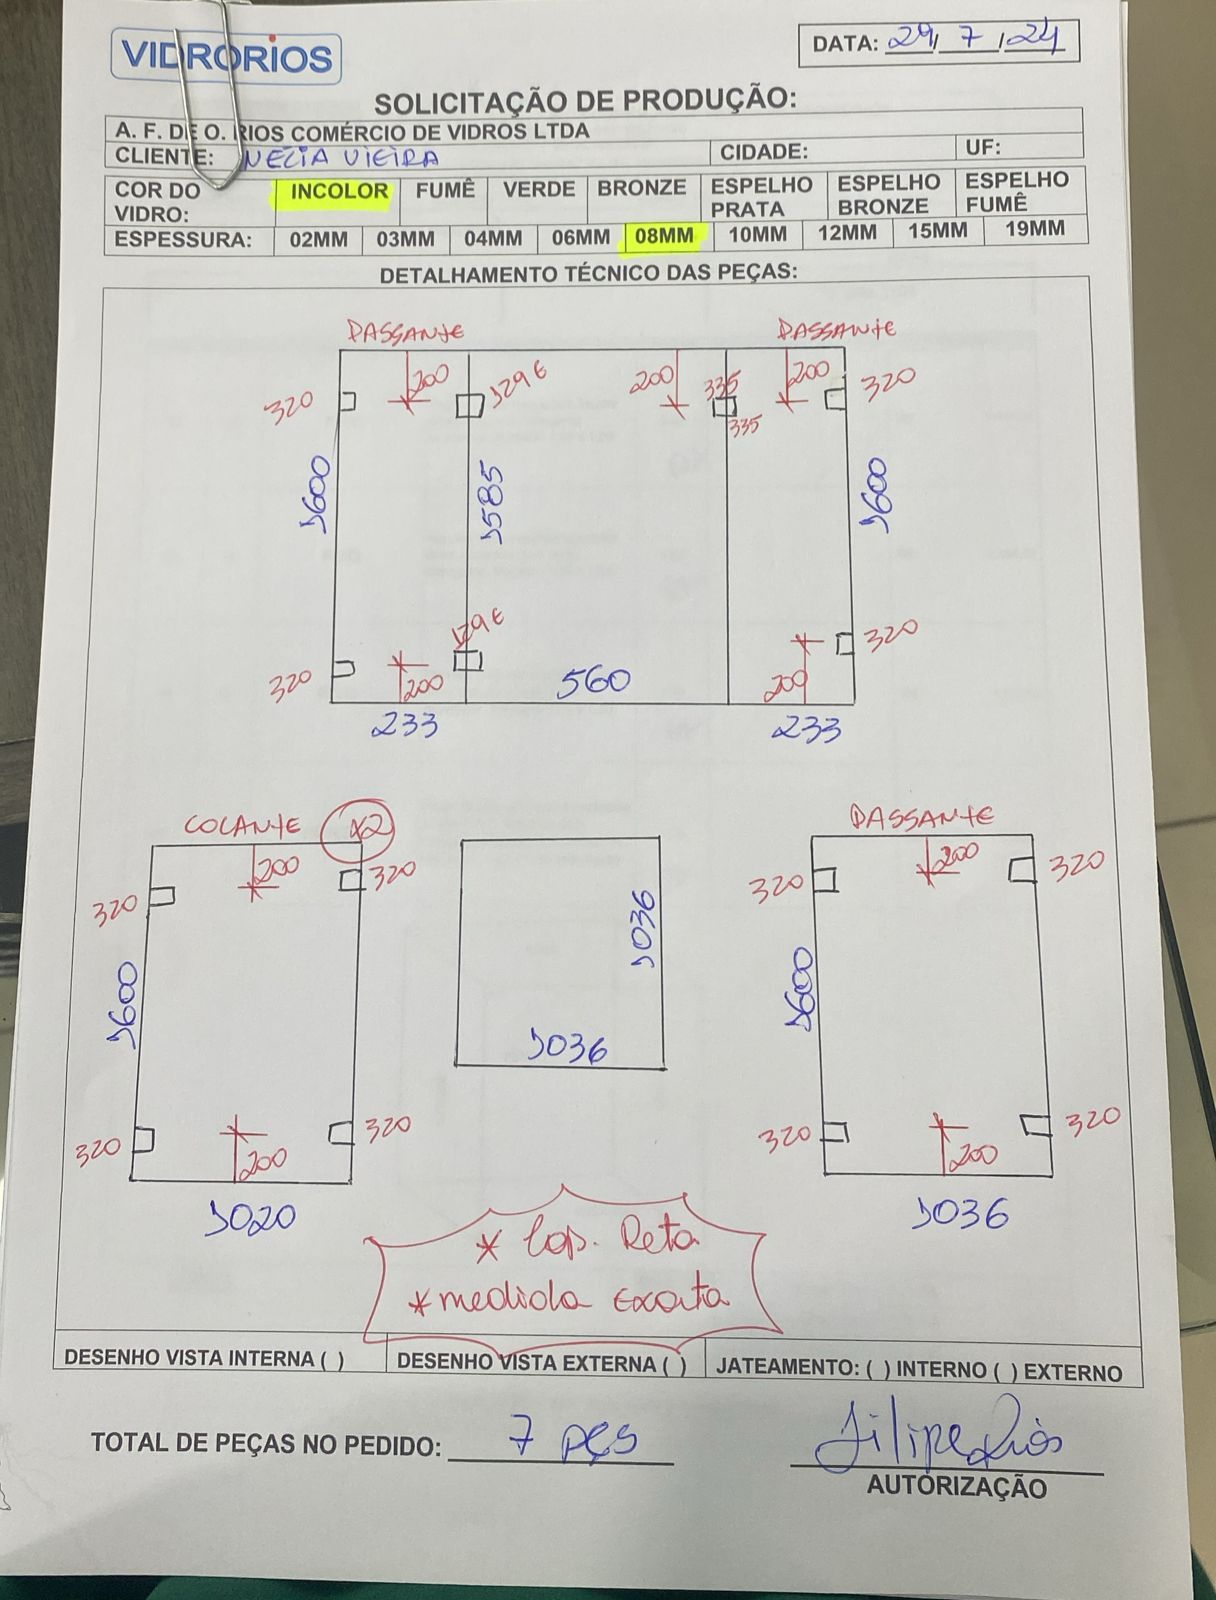 VIDRORIOS
DATA: 29, 7, 24
SOLICITAÇÃO DE PRODUÇÃO:
A. F. DE O. RIOS COMÉRCIO DE VIDROS LTDA
CLIENTE: NEZIA VIEIRA CIDADE: UF:
COR DO VIDRO: INCOLOR FUMÊ VERDE BRONZE ESPELHO PRATA ESPELHO BRONZE ESPELHO FUMÊ
ESPESSURA: 02MM 03MM 04MM 06MM 08MM 10MM 12MM 15MM 19MM
DETALHAMENTO TÉCNICO DAS PEÇAS:
PASSANTE PASSANTE
320 200 129E 200 335 200 320
335
1600 1585 1600
129E
320 200 560 200 320
233 233
COLANTE x2 PASSANTE
320 200 320 320 200 320
1600 1036 1600
1036
320 200 320 320 200 320
1020 1036
* Lap. Reta
* medida Exata
DESENHO VISTA INTERNA ( ) DESENHO VISTA EXTERNA ( ) JATEAMENTO: ( ) INTERNO ( ) EXTERNO
TOTAL DE PEÇAS NO PEDIDO: 7 PÇS
Filipe Rios
AUTORIZAÇÃO